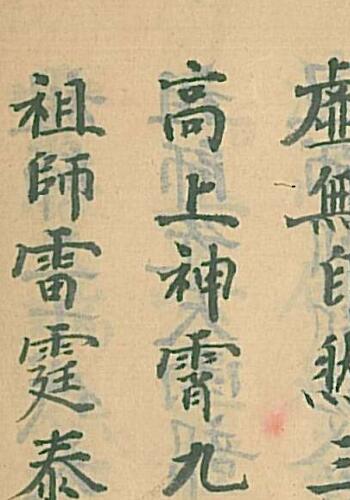 虛無自然三
高上神霄九
祖師雷霆泰